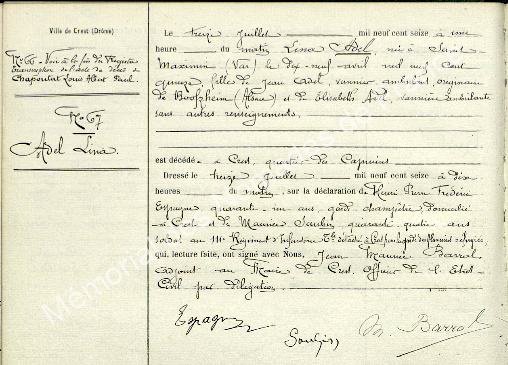 Ville de Crest (Drôme)
N° 66 - Voir à la fin du Registre
transcription de l'acte de décès de
Chapoutat Louis Albert Paul.
N° 67
Adel Lina.
Le treize juillet mil neuf cent seize à une
heure du matin Lina Adel, née à Saint-
Maximin (Var) le dix-neuf avril mil neuf cent
quinze, fille de Jean Adel, vannier ambulant, originaire
de Boofzheim (Alsace) et de Elisabeth Adel, vannière ambulante
sans autres renseignements.
est décédée à Crest, quartier des Capucins
Dressé le treize juillet mil neuf cent seize à dix
heures du matin, sur la déclaration de Henri Pierre Frédéric
Espagne quarante-un ans, garde champêtre, domicilié
à Crest et de Maurice quarante quatre ans
soldat au 111e Régiment d'Infanterie détaché à Crest
qui, lecture faite, ont signé avec Nous, Jean Maurice Barral
adjoint au Maire de Crest, Officier de l'Etat-
Civil par délégation.
Espagne
M. Barral